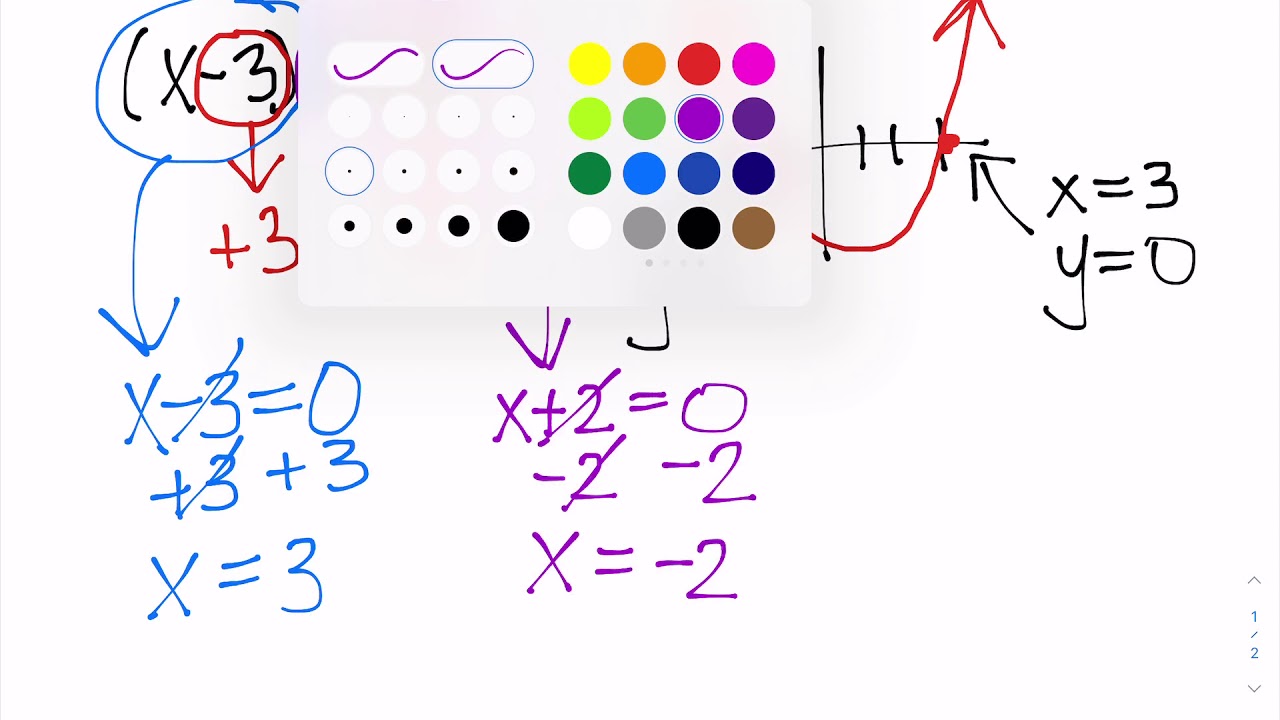 (x-3)
+3
x=3
y=0
x-3=0
+3 +3
x=3
x+2=0
-2 -2
x=-2
1
/
2